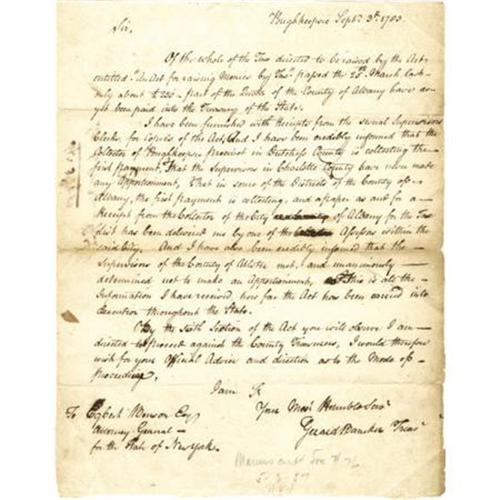 Poughkeepsie Septr. 3d. 1783.
Sir,
Of the whole of the Tax directed to be raised by the Act
entitled "An Act for raising Monies by Tax" passed the 25th March last
only about £200 part of the Quota of the County of Albany have as
yet been paid into the Treasury of the State.
I have been furnished with Receipts from the several Supervisors
Clerks for Copies of the Act, And I have been credibly informed that the
Collector of Poughkeepsie precinct in Dutchess County is collecting the
first payment, That the Supervisors in Charlotte County have never made
any Apportionment, That in some of the Districts of the County of
Albany, the first payment is collecting, and a paper as and for a
Receipt from the Collector of the City of Albany for the Tax
list has been delivered me by one of the Assessors within the
said City. And I have also been credibly informed that the
Supervisors of the County of Ulster met, and unanimously
determined not to make an Apportionment, This is all the
Information I have received, how far the Act has been carried into
Execution throughout the State.
By the sixth Section of the Act you will observe I am
directed to proceed against the County Treasurers, I would therefore
wish for your Official Advice and direction as to the Mode of
proceeding.
I am Sir
Your Most Humble Servt
Gerard Bancker Treasr
To Egbert Benson Esqr
Attorney General
for the State of New York.